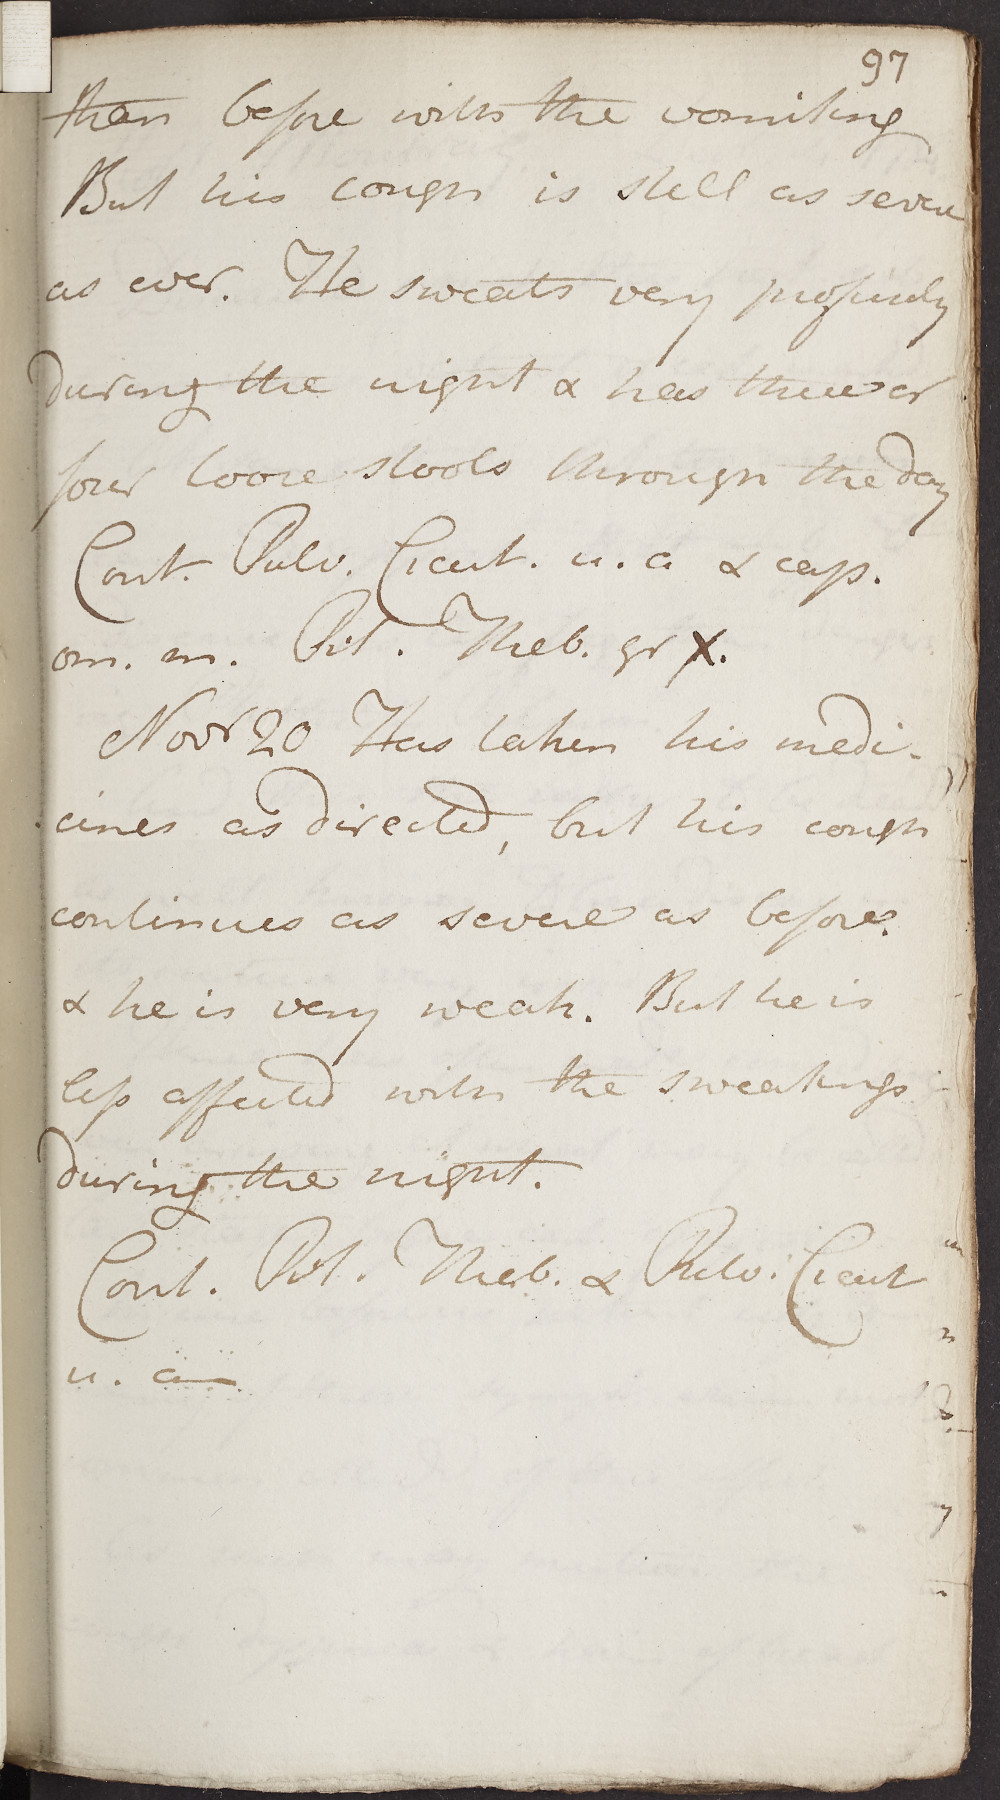 97
than before with the vomiting
But his cough is still as severe
as ever. He sweats very profusely
during the night & has three or
four loose stools through the day
Cont. Pulv. Cicut. u. a & cap.
om. n. Pil. Theb. gr X.
Novr 20 Has taken his medi-
cines as directed, but his cough
continues as severe as before.
& he is very weak. But he is
less affected with the sweatings
during the night.
Cont. Pil. Theb. & Pulv. Cicut
u. a